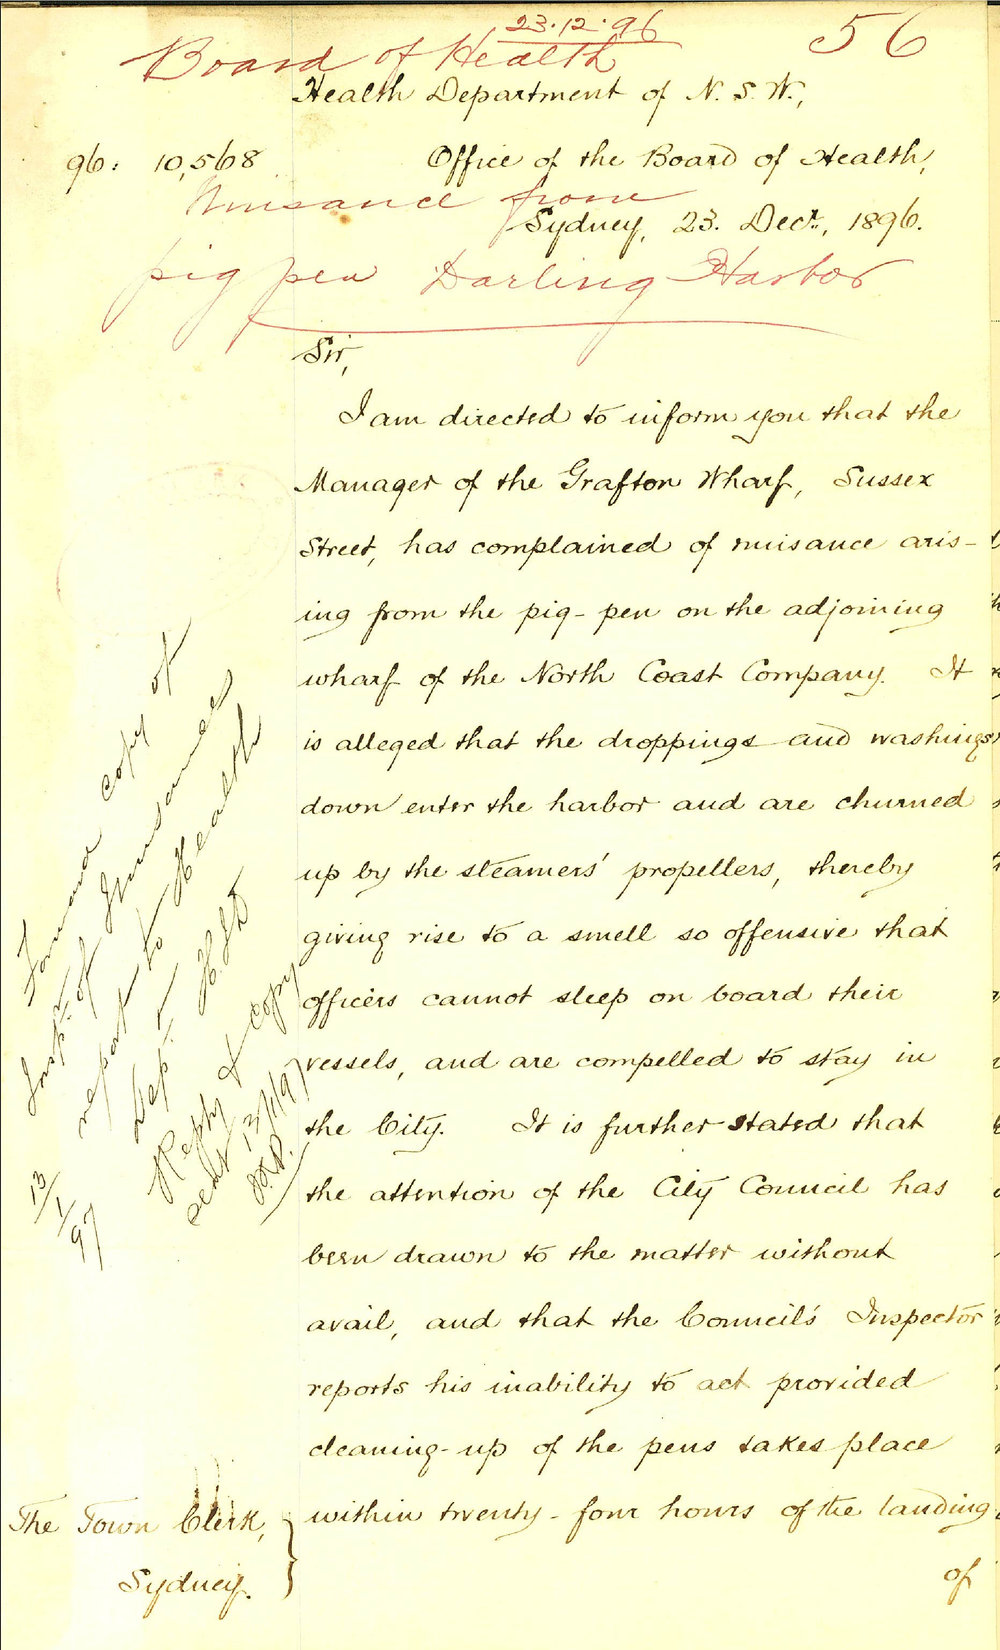 23.12.96
56
Board of Health
Health Department of N. S. W.,
96: 10,568
Office of the Board of Health,
Nuisance from
Sydney, 23. Decr., 1896.
pig pen Darling Harbor
Sir,
I am directed to inform you that the
Manager of the Grafton Wharf, Sussex
Street, has complained of nuisance aris-
ing from the pig-pen on the adjoining
wharf of the North Coast Company. It
is alleged that the droppings and washings
down enter the harbor and are churned
up by the steamers' propellers, thereby
giving rise to a smell so offensive that
officers cannot sleep on board their
vessels, and are compelled to stay in
the City. It is further stated that
the attention of the City Council has
been drawn to the matter without
avail, and that the Council's Inspector
reports his inability to act provided
cleaning-up of the pens takes place
within twenty-four hours of the landing
of
The Town Clerk,
Sydney.
Forward copy of
Insptr. of Nuisances
report to Health
Dept.
13/1/97
Reply & copy
sent 13/1/97